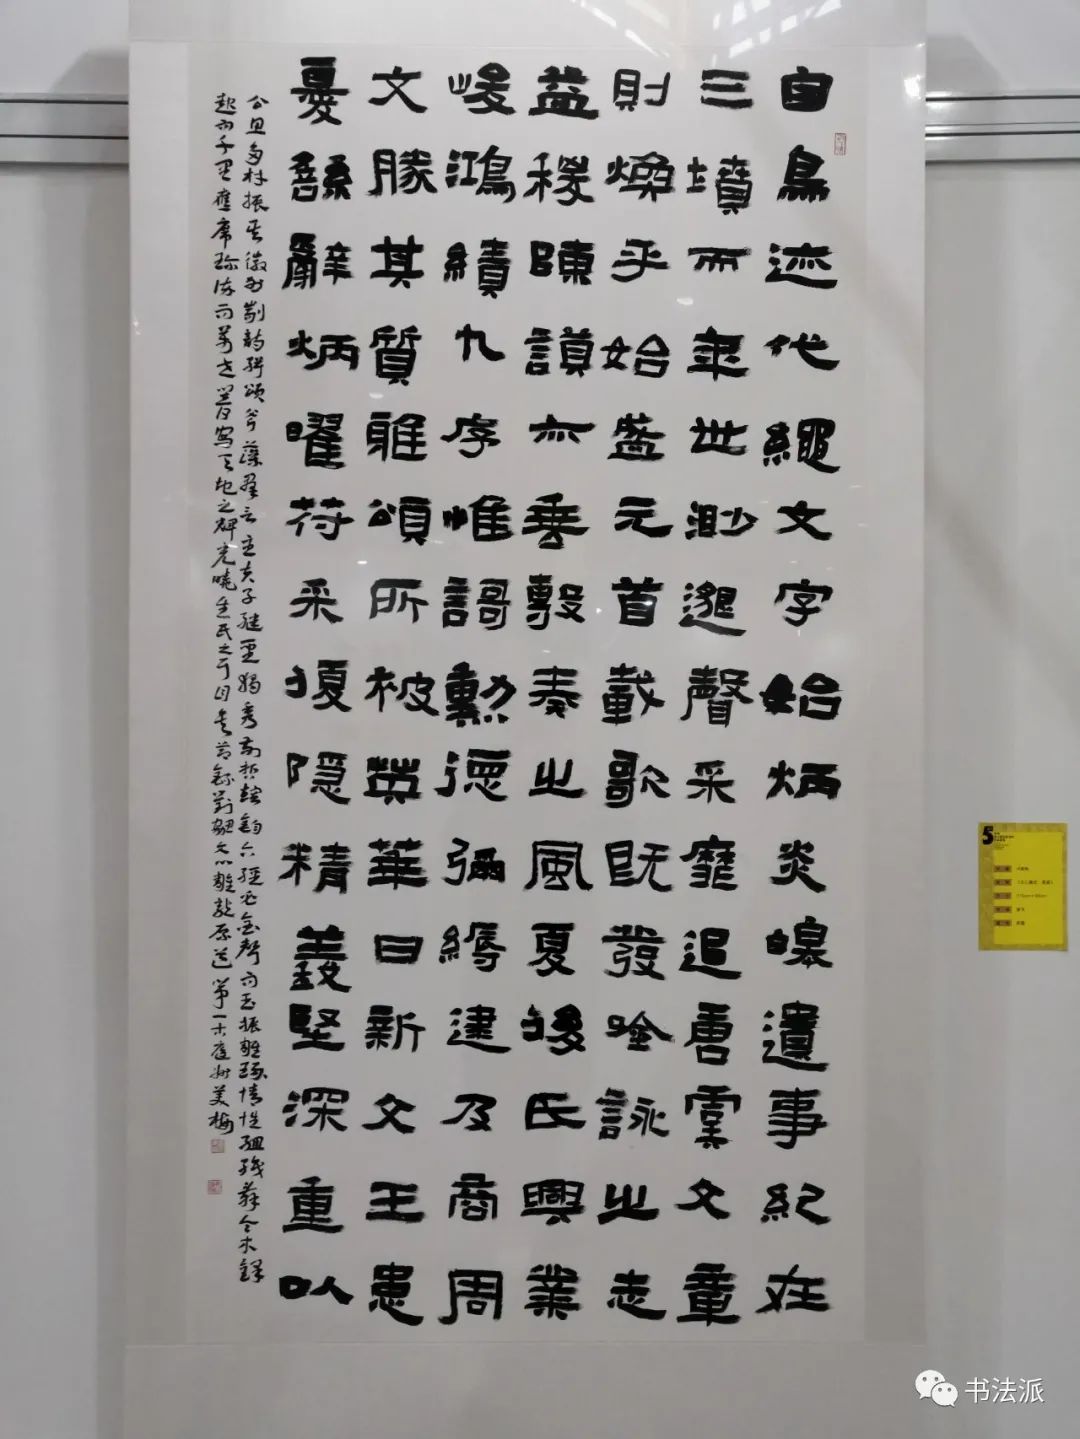 自鳥迹代繩文字始炳炎皞遺事紀在
三墳而年世渺邈聲采靡追唐虞文章
則煥乎始盛元首載歌既發吟詠之志
益稷陳謨亦垂敷奏之風夏後氏興業
峻鴻績九序惟謌勳德彌縟逮及商周
文勝其質雅頌所被英華日新文王患
憂繇辭炳曜符采複隐精義堅深重以
公旦多材振其徽烈剬詩緝頌斧藻群言至夫子繼聖獨秀前哲鎔鈞六經必金聲而玉振雕琢情性組織辭令木鐸
起而千里應席珍流而萬世響寫天地之輝光曉生民之耳目矣節錄劉勰文心雕龍原道第一美梅
5
书法派